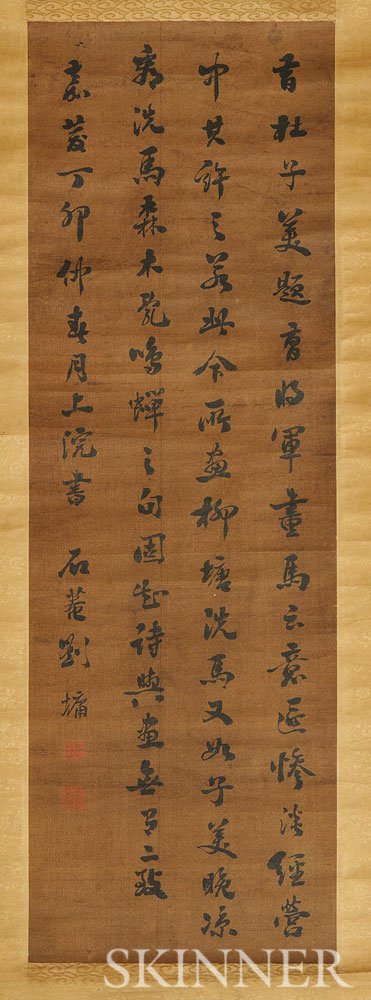 昔杜子美題曹將軍畫馬云意匠慘淡經營
中其許之若此今所畫柳塘洗馬又如子美晚涼
看洗馬森木亂鳴蟬之句固知詩與畫無有二致
嘉慶丁卯仲春月上浣書 石菴劉墉
SKINNER